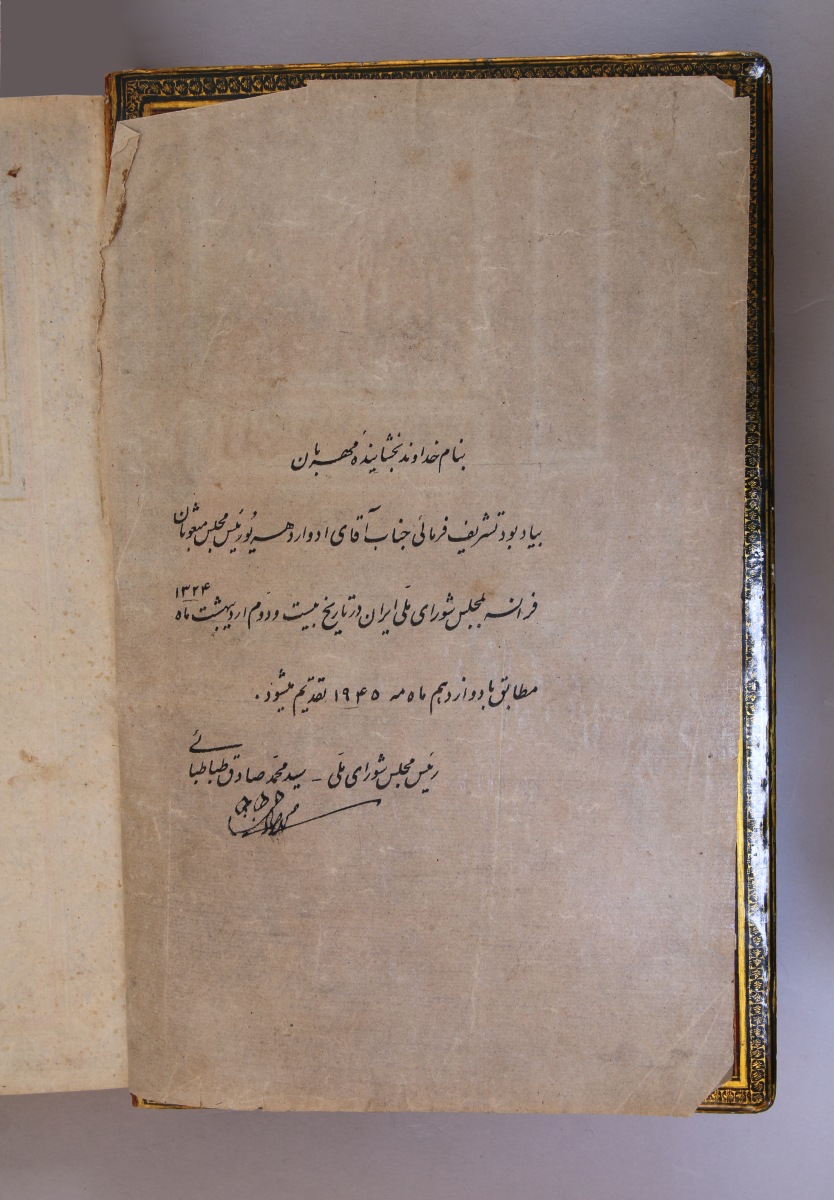 بنام خداوند بخشاینده مهربان
بیاد بود تشریف فرمائی جناب آقای ادوارد هریو رئیس مجلس مبعوثان
فرانسه بمجلس شورای ملّی ایران در تاریخ بیست و دوّم اردیبهشت ماه ۱۳۲۴
مطابق با دوازدهم ماه مه ۱۹۴۵ تقدیم میشود.
رئیس مجلس شورای ملّی - سید محمّد صادق طباطبائی